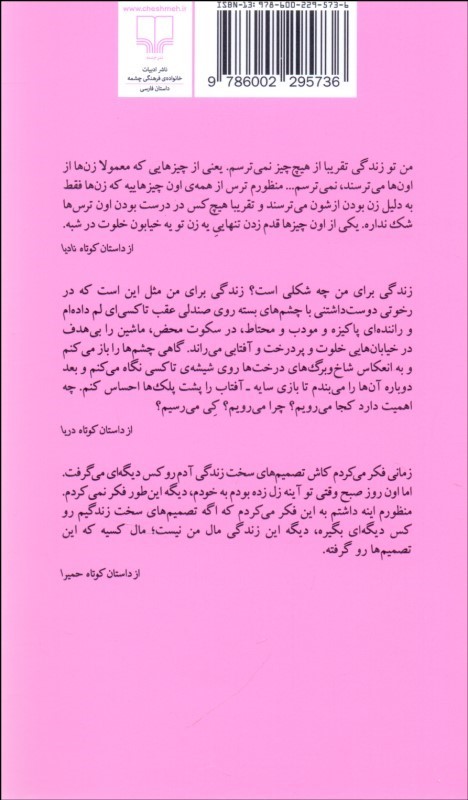 ISBN-13: 978-600-229-573-6
9 786002 295736
www.cheshmeh.ir
ناشر ادبیات
خانواده‌ی فرهنگی چشمه
داستان فارسی
من تو زندگی تقریبا از هیچ‌چیز نمی‌ترسم. یعنی از چیزهایی که معمولا زن‌ها از
اون‌ها می‌ترسند، نمی‌ترسم... منظورم ترس از همه‌ی اون چیزهاییه که زن‌ها فقط
به دلیل زن بودن ازشون می‌ترسند و تقریبا هیچ‌کس در درست بودن اون ترس‌ها
شک نداره. یکی از اون چیزها قدم زدن تنهاییِ یه زن تو یه خیابون خلوت در شبه.
از داستان کوتاه نادیا\
زندگی برای من چه شکلی است؟ زندگی برای من مثل این است که در
رخوتی دوست‌داشتنی با چشم‌های بسته روی صندلی عقب تاکسی‌ای لم داده‌ام
و راننده‌ای پاکیزه و مودب و محتاط، در سکوت محض، ماشین را بی‌هدف
در خیابان‌هایی خلوت و پردرخت و آفتابی می‌راند. گاهی چشم‌ها را باز می‌کنم
و به انعکاس شاخ‌وبرگ‌های درخت‌ها روی شیشه‌ی تاکسی نگاه می‌کنم و بعد
دوباره آن‌ها را می‌بندم تا بازی سایه ـ آفتاب را پشت پلک‌ها احساس کنم. چه
اهمیت دارد کجا می‌رویم؟ چرا می‌رویم؟ کِی می‌رسیم؟
از داستان کوتاه دریا\
زمانی فکر می‌کردم کاش تصمیم‌های سخت زندگی آدم رو کس دیگه‌ای می‌گرفت.
اما اون روز صبح وقتی تو آینه زل زده بودم به خودم، دیگه این‌طور فکر نمی‌کردم.
منظورم اینه داشتم به این فکر می‌کردم که اگه تصمیم‌های سخت زندگیم رو
کس دیگه‌ای بگیره، دیگه این زندگی مال من نیست؛ مال کسیه که این
تصمیم‌ها رو گرفته.
از داستان کوتاه حمیرا\